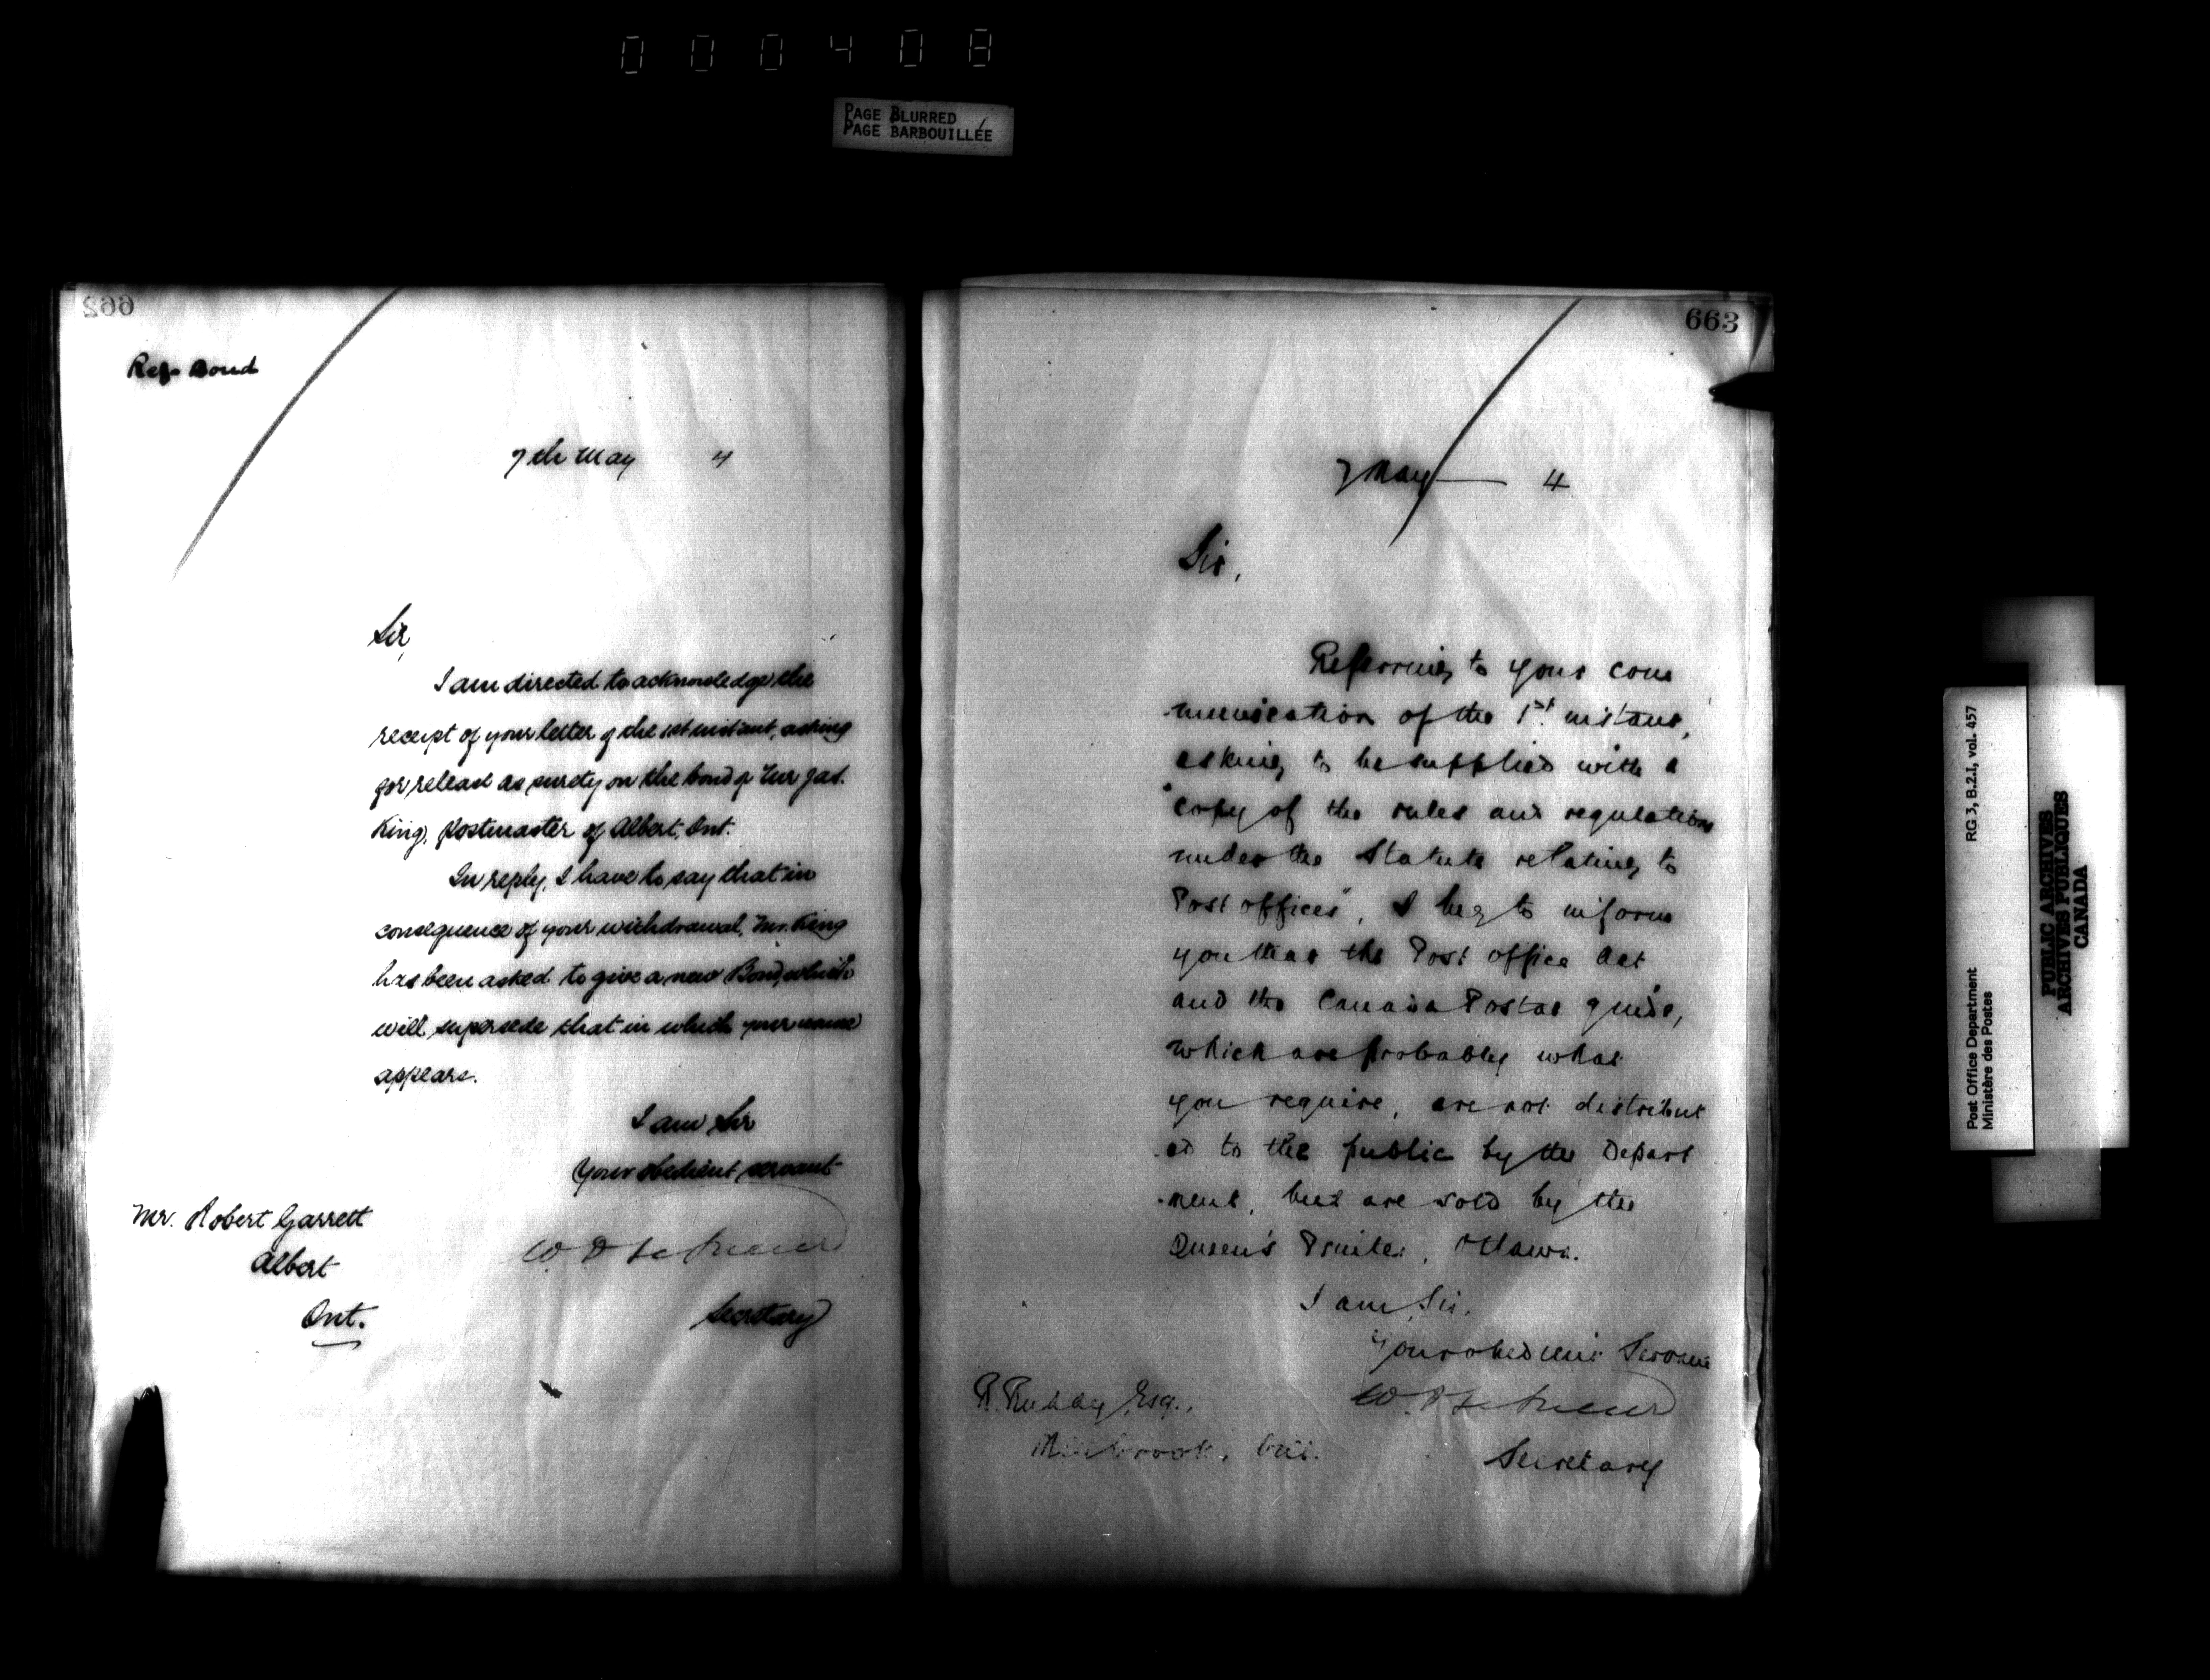 000408
PAGE BLURRED
PAGE BARBOUILLÉE
662
Ref. Bond
7th May 4
Sir,
I am directed to acknowledge the
receipt of your letter of the 1st instant, asking
for release as surety on the bond of Mr Jas.
King, Postmaster of Albert, Ont.
In reply, I have to say that in
consequence of your withdrawal, Mr. King
has been asked to give a new Bond, which
will supersede that in which your name
appears.
I am Sir
Your obedient servant
Mr. Robert Garrett
Albert
Ont.
W. D.
Secretary
663
7 May 4
Sir,
Referring to your com
munication of the 1st. instant,
asking to be supplied with a
"copy of the rules and regulations
under the Statute relating to
Post offices", I beg to inform
you that the Post office Act
and the Canada Postal guide,
which are probably what
you require, are not distribut
ed to the public by the Depart
ment, but are sold by the
Queen's Printer, Ottawa.
I am, Sir,
Your obedient Servant
R. Esq.,
W. D.
Secretary
Post Office Department
Ministère des Postes
RG 3, B.2.I, vol. 457
PUBLIC ARCHIVES
ARCHIVES PUBLIQUES
CANADA